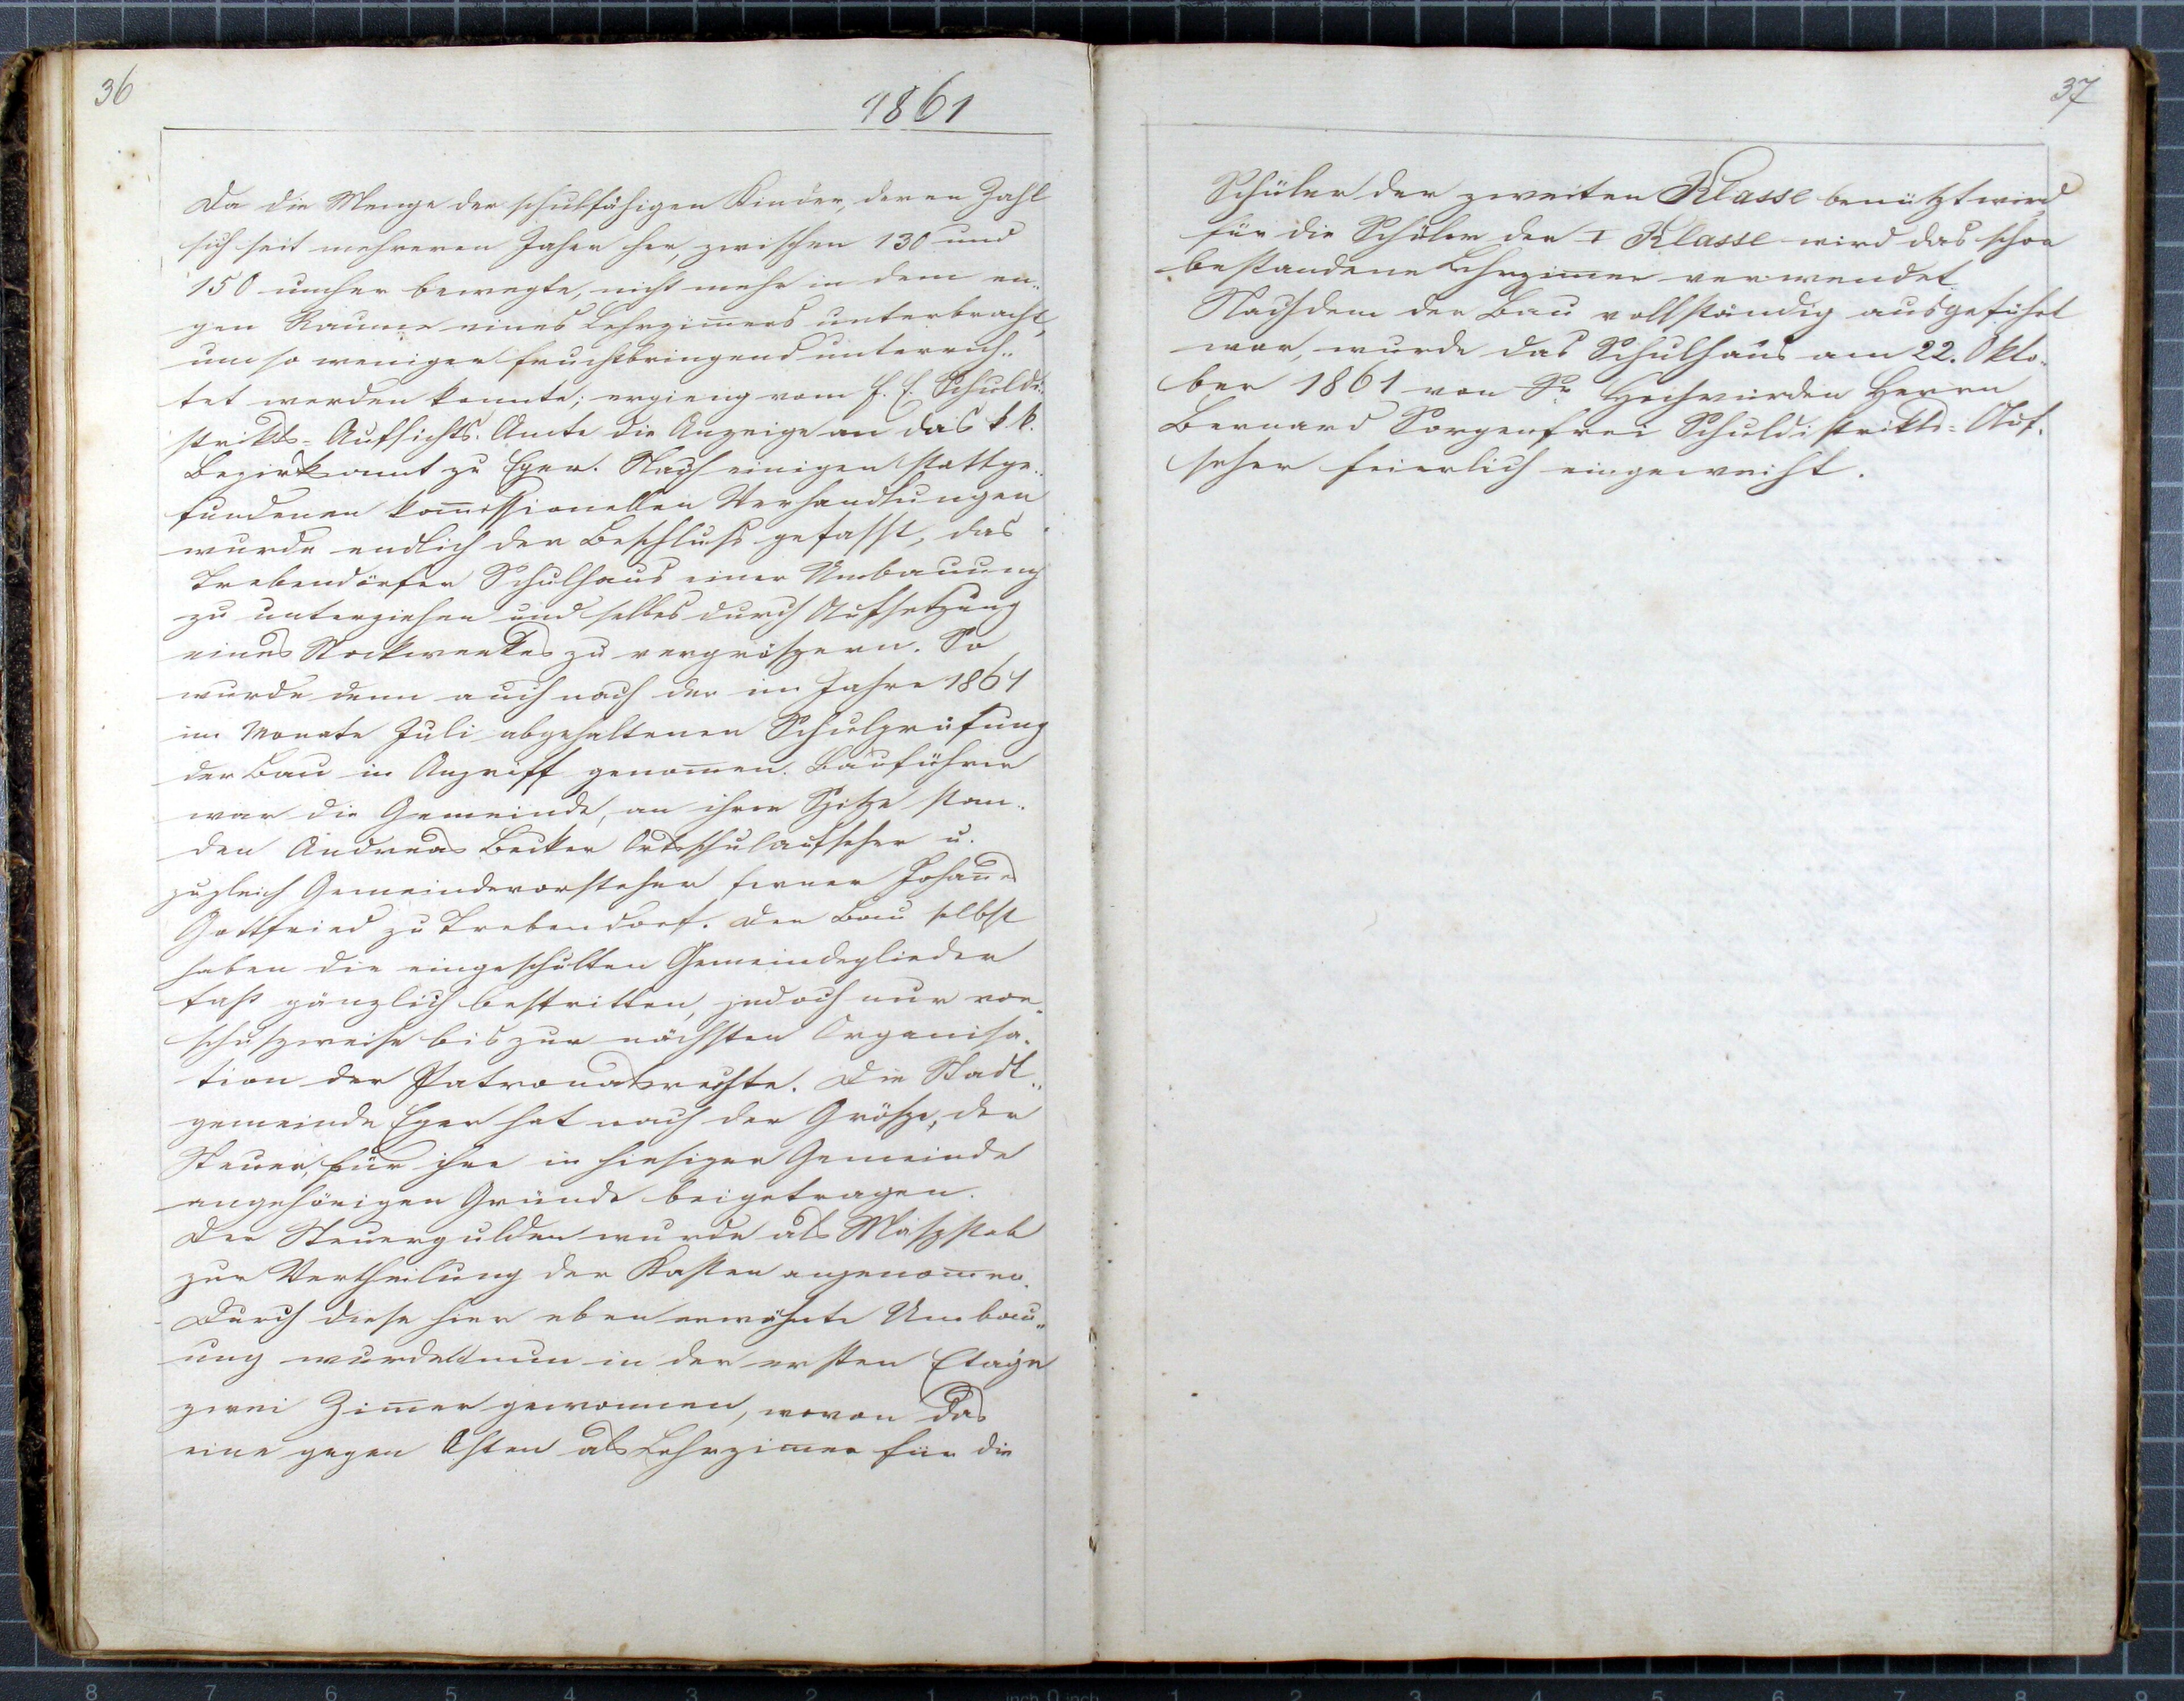 36
1861
Da die Menge der schulfähigen Kinder, deren Zahl
sich seit mehreren Jahren her, zwischen 130 und
150 umher bewegte, nicht mehr in dem en„
gen Raume eines Lehrzim̅ers unterbracht,
um so weniger fruchtbringend unterrich„
tet werden konnte; ergieng vom f. e. Schuldi„
strikts-Aufsichts-Amte die Anzeige an das k. k.
Bezirksamt zu Eger. Nach einigen stattge„
fundenen kom̅issionellen Verhandlungen
wurde endlich der Beschluß gefasst, das
Trebendörfer Schulhaus einer Umbauung
zu unterziehen und selbes durch Aufsetzung
eines Stockwerkes zu vergrößern. So
wurde denn auch nach der im Jahre 1861
im Monate Juli abgehaltenen Schulprüfung
der Bau in Angriff genom̅en. Bauführer
war die Gemeinde, an ihrer Spitze stan„
den Andreas Becker Ortsschulaufseher u.
zugleich Gemeindevorsteher ferner Johan̅
Gottfried zu Trebendorf. Den Bau selbst
haben die eingeschulten Gemeindeglieder
fast gänzlich bestritten, jedoch nur vor„
schußweise bis zur nächsten Organisa„
tion der Patronatsrechte. Die Stadt„
gemeinde Eger hat nach der Größe, der
Steuer, für ihre in hiesiger Gemeinde
angehörigen Gründe beigetragen.
Der Steuergulden wurde als Maßstab
zur Vertheilung der Kosten angenom̅en.
Durch diese hier eben erwähnte Umbau„
ung wurden nun in der ersten Etage
zwei Zim̅er gewonnen, wovon das
eine gegen Osten als Lehrzim̅er für die
37
Schüler der zweiten Klasse benützt wird
für die Schüler der I Klasse wird das schon
bestandene Lehrzim̅er verwendet
Nachdem der Bau vollständig ausgeführt
war, wurde das Schulhaus am 22. Okto„
ber 1861 von Sr Hochwürden Herrn
Bernard Sorgenfrei Schuldistrikts-Auf„
seher feierlich eingeweiht.